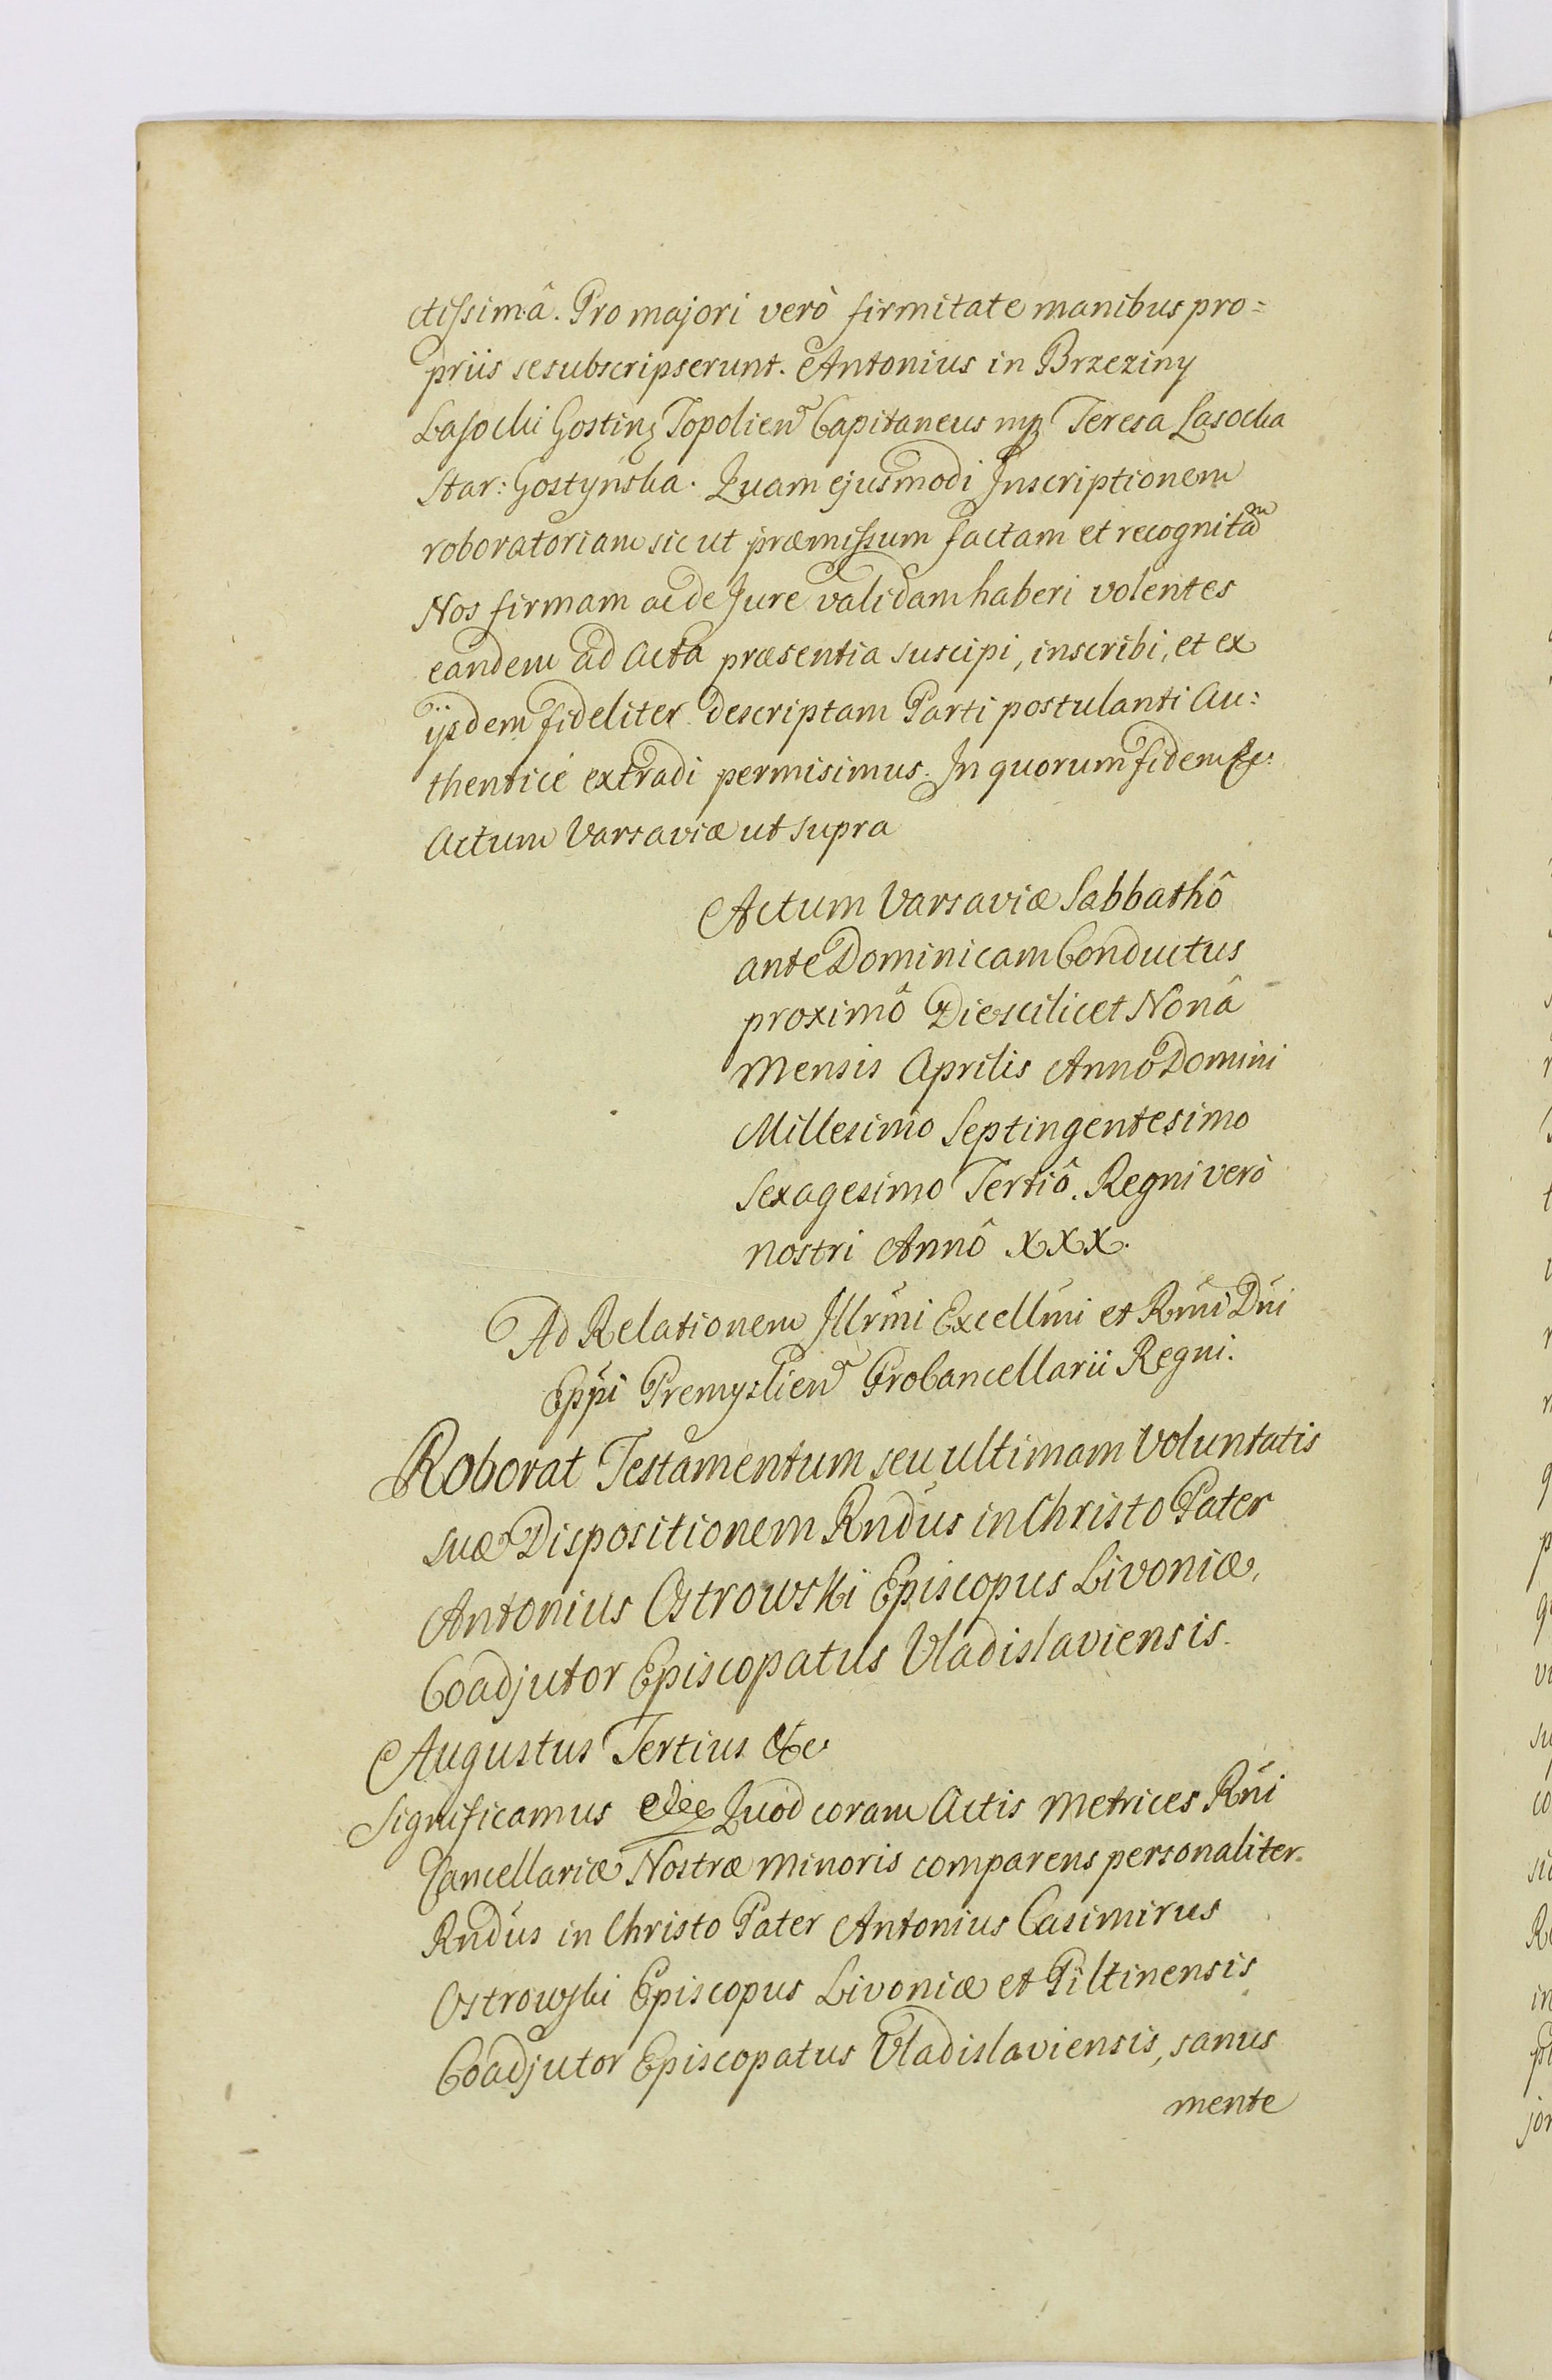 ctissimâ. Pro majori verò firmitate manibus pro=
priis se subscripserunt. Antonius in Brzeziny
Lasocki Gostin; Topolien Capitaneus mp Teresa Lasocka
Star: Gostynska. Quam ejusmodi Inscriptionem
roboratoriam sic ut præmissum factam et recognitam
Nos firmam ac de Jure validam haberi volentes
eandem ad Acta præsentia suscipi, inscribi, et ex
ijsdem fideliter descriptam Parti postulanti Au:
thenticè extradi permisimus. In quorum fidem &c:
Actum Varsaviæ ut supra
Actum Varsaviæ Sabbathô
ante Dominicam Conductus
proximô Die scilicet Nonâ
Mensis Aprilis Annô Domini
Millesimo Septingentesimo
Sexagesimo Tertiô. Regni verò
nostri Annô XXX.
Ad Relationem Illrmi Excellmi et Rmi Dni
Eppi Premyslien ProCancellarii Regni.
Roborat Testamentum seu ultimam Voluntatis
suæ Dispositionem Rndus in Christo Pater
Antonius Ostrowski Episcopus Livoniæ,
Coadjutor Episcopatus Vladislaviensis.
Augustus Tertius &c
Significamus &c Quod coram Actis Metrices Rni
Cancellariæ Nostræ Minoris comparens personaliter
Rndus in Christo Pater Antonius Casimirus
Ostrowski Episcopus Livoniæ et Piltinensis
Coadjutor Episcopatus Vladislaviensis, sanus
mente